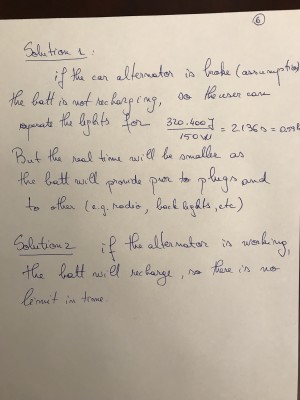 6
Solution 1:
if the car alternator is broke (assumption)
the batt is not recharging, so the user can
operate the lights for 320.400 J / 150 W = 2.136 s =
But the real time will be smaller as
the batt will provide pwr to plugs and
to other (e.g. radio, back lights, etc)
Solution 2 if the alternator is working,
the batt will recharge, so there is no
limit in time.